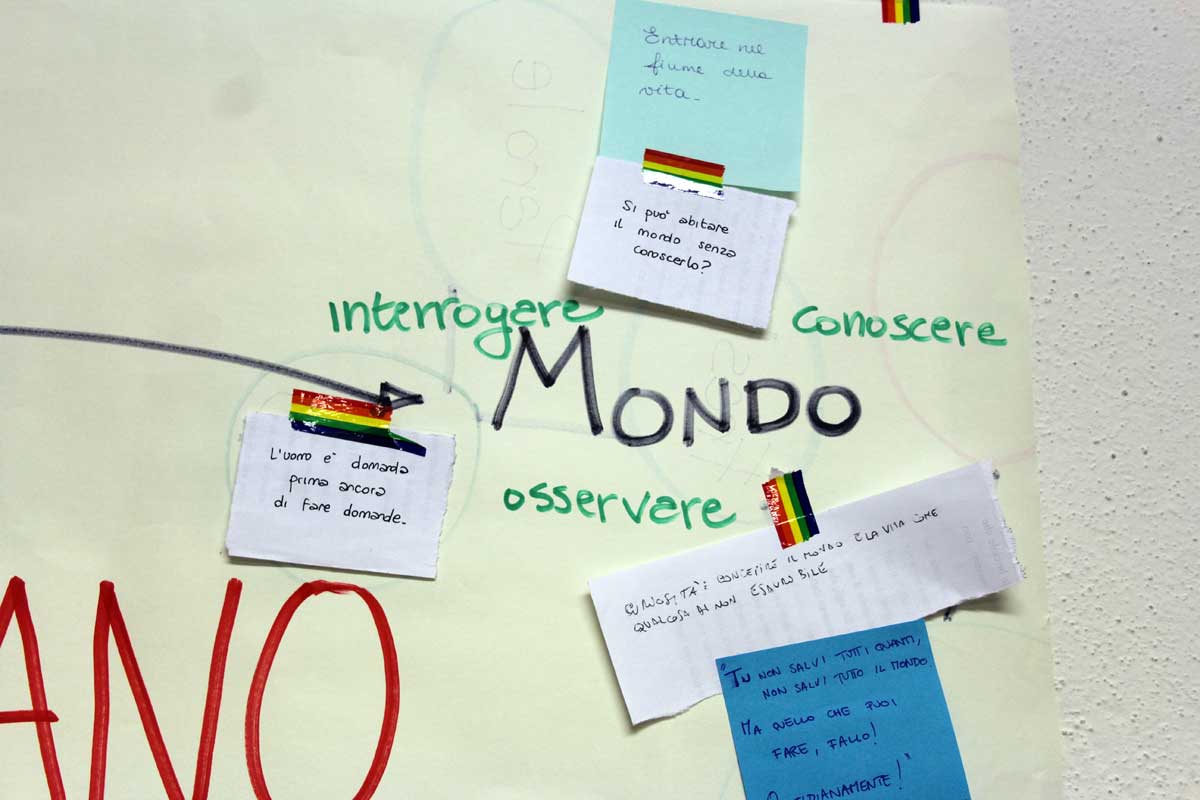 Entrare nel
fiume della
vita.
Si può abitare
il mondo senza
conoscerlo?
interrogare
conoscere
MONDO
L'uomo e' domanda
prima ancora
di fare domande.
osservare
CURIOSITÀ: CONCEPIRE IL MONDO E LA VITA COME
QUALCOSA DI NON ESAURIBILE
"TU NON SALVI TUTTI QUANTI,
NON SALVI TUTTO IL MONDO.
MA QUELLO CHE PUOI
FARE, FALLO!
QUOTIDIANAMENTE!"
ANO